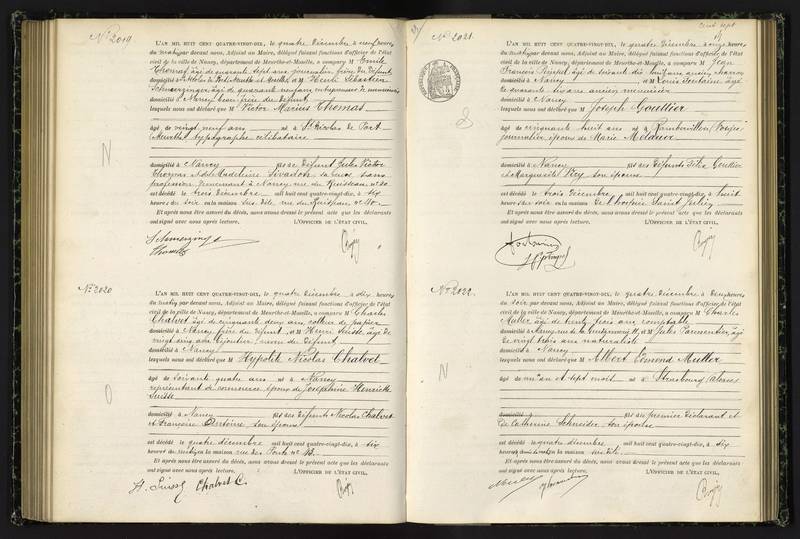 N° 2019
L'AN MIL HUIT CENT QUATRE-VINGT-DIX, le quatre Décembre à neuf heures
du matin par devant nous, Adjoint au Maire, délégué faisant fonctions d'officier de l'état
civil de la ville de Nancy, département de Meurthe-et-Moselle, a comparu M Emile
Thomas âgé de quarante sept ans, journalier, frère du défunt
domicilié à et M Henri Sébastien
Schmerzinger âgé de quarante neuf ans entrepreneur de menuiserie
domicilié à Nancy beau frère du défunt
lesquels nous ont déclaré que M Victor Marius Thomas
âgé de vingt neuf ans né à St Nicolas de Port
Meurthe typographe célibataire
domicilié à Nancy fils de Défunt Jules Victor
Thomas et de Madeleine sa veuve sans
profession demeurant à Nancy rue du Ruisseau n° 40
est décédé le trois Décembre mil huit cent quatre-vingt-dix, à six
heures du soir en la maison sus dite rue du Ruisseau n° 40.
Et après nous être assuré du décès, nous avons dressé le présent acte que les déclarants
ont signé avec nous après lecture. L'OFFICIER DE L'ÉTAT CIVIL,
Schmerzinger
Thomas
N
N° 2020
L'AN MIL HUIT CENT QUATRE-VINGT-DIX, le quatre Décembre à dix heures
du matin par devant nous, Adjoint au Maire, délégué faisant fonctions d'officier de l'état
civil de la ville de Nancy, département de Meurthe-et-Moselle, a comparu M Charles
Chatvet âgé de cinquante deux ans, colleur de papier
domicilié à Nancy frère du défunt, et M Henri Suisse âgé de
vingt cinq ans bijoutier, neveu du défunt,
domicilié à Nancy
lesquels nous ont déclaré que M Hypolite Nicolas Chatvet
âgé de soixante quatre ans né à Nancy
représentant de commerce époux de Joséphine Henriette
Suisse
domicilié à Nancy fils des défunts Nicolas Chatvet
et Françoise Bertoire son épouse
est décédé le quatre décembre mil huit cent quatre-vingt-dix, à six
heures du matin en la maison rue des Ponts n° 13.
Et après nous être assuré du décès, nous avons dressé le présent acte que les déclarants
ont signé avec nous après lecture. L'OFFICIER DE L'ÉTAT CIVIL,
H. Suisse Chatvet C.
O
cent sept
N° 2021
L'AN MIL HUIT CENT QUATRE-VINGT-DIX, le quatre Décembre à onze heures
du matin par devant nous, Adjoint au Maire, délégué faisant fonctions d'officier de l'état
civil de la ville de Nancy, département de Meurthe-et-Moselle, a comparu M Jean
François âgé de soixante dix huit ans ancien charron
domicilié à Nancy, et M Louis Fontaine âgé
de quarante six ans ancien menuisier
domicilié à Nancy
lesquels nous ont déclaré que M Joseph Gouttier
âgé de cinquante huit ans né à Rambervillers (Vosges)
journalier époux de Marie
domicilié à Nancy fils des défunts Félix Gouttier
et Marguerite son épouse
est décédé le trois Décembre mil huit cent quatre-vingt-dix, à huit
heures du soir en la maison de l'hospice Saint Julien
Et après nous être assuré du décès, nous avons dressé le présent acte que les déclarants
ont signé avec nous après lecture. L'OFFICIER DE L'ÉTAT CIVIL,
N° 2022
L'AN MIL HUIT CENT QUATRE-VINGT-DIX, le quatre Décembre à deux heures
du soir par devant nous, Adjoint au Maire, délégué faisant fonctions d'officier de l'état
civil de la ville de Nancy, département de Meurthe-et-Moselle, a comparu M Charles
Muller âgé de trente trois ans, comptable
domicilié à Nancy, et M Jules Parmentier, âgé
de vingt trois ans naturaliste
domicilié à Nancy
lesquels nous ont déclaré que M Albert Edmond Muller
âgé de un an et sept mois né à Strasbourg (Alsace)
domicilié à fils du premier Déclarant et
de Catherine Schneider son épouse
est décédé le quatre décembre mil huit cent quatre-vingt-dix, à six
heures du matin en la maison susdite.
Et après nous être assuré du décès, nous avons dressé le présent acte que les déclarants
ont signé avec nous après lecture. L'OFFICIER DE L'ÉTAT CIVIL,
N